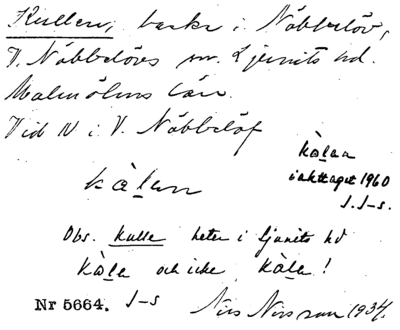 Kullen, backe i Näbbelöv,
V. Näbbelövs sn. Ljunits hd.
Malmöhus län.
Vid IV i V. Nöbbelöf
kò̱laṇ
iakttaget 1960
J. J-s.
kàḻen
Obs. kulle heter i Ljunits hd
kòla och icke kàla!
Nr 5664. J-s Nils Nilsson 1934.